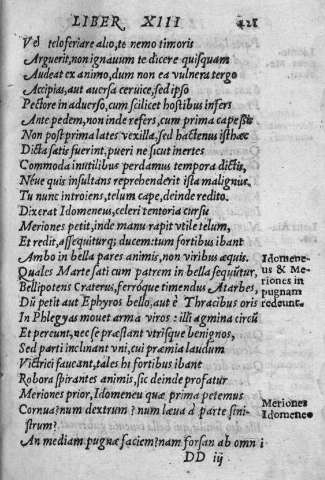 LIBER XIII 421
Vel teloferiare alio, te nemo timoris
Arguerit, non ignauum te dicere quisquam
Audeat ex animo, dum non ea vulnera tergo
Accipias, aut auersa ceruice, sed ipso
Pectore in aduerso, cum scilicet hostibus infers
Ante pedem, non inde refers, cum prima capeßis
Non post prima lates vexilla, sed hactenus isthæc
Dicta satis fuerint, pueri ne sicut inertes
Commoda inutilibus perdamus tempora dictis,
Néue quis insultans reprehenderit ista malignus.
Tu nunc introiens, telum cape, deinde redito.
Dixerat Idomeneus, celeri tentoria cursu
Meriones petit, inde manu rapit vtile telum,
Et redit, assequiturq; ducem: tum fortibus ibant
Ambo in bella pares animis, non viribus æquis.
Quales Marte sati cum patrem in bella sequũtur,
Bellipotens Craterus, ferróque timendus Atarbes,
Dũ petit aut Ephyros bello, aut è Thracibus oris
In Phlegyas mouet arma viros: illi agmina circũ
Et pereunt, nec se præstant vtrisque benignos,
Sed parti inclinant vni, cui præmia laudum
Victrici faueant, tales hi fortibus ibant
Robora spirantes animis, sic deinde profatur
Meriones prior, Idomeneu quæ prima petemus
Cornua? num dextrum? num læua à parte sini-
strum?
An mediam pugnæ faciem? nam forsan ab omni
DD iij
Idomene-
us & Me-
riones in
pugnam
redeunt.
Meriones
Idomeneo